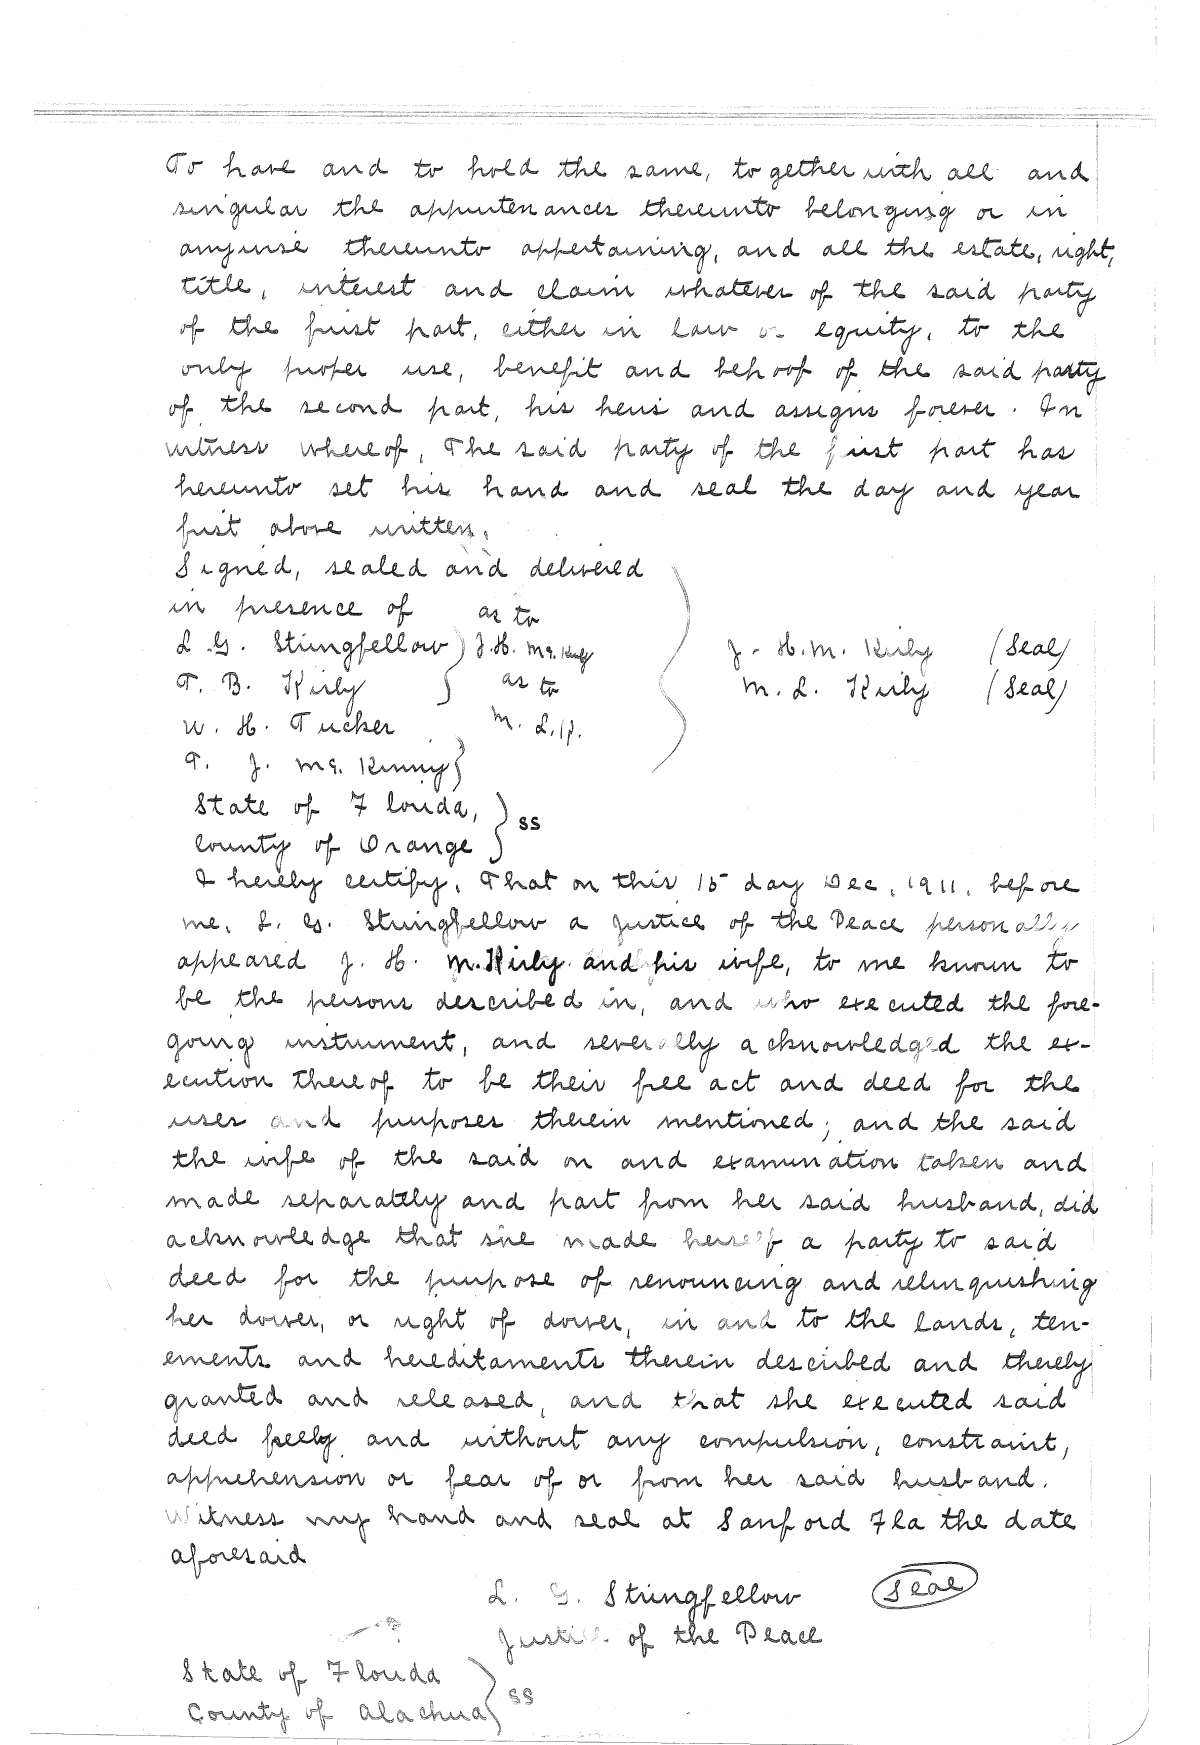 To have and to hold the same, together with all and
singular the appurtenances thereunto belonging or in
anywise thereunto appertaining, and all the estate, right,
title, interest and claim whatever of the said party
of the first part, either in law or equity, to the
only proper use, benefit and behoof of the said party
of the second part, his heirs and assigns forever. In
witness whereof, The said party of the first part has
hereunto set his hand and seal the day and year
first above written.
Signed, sealed and delivered
in presence of as to
L. G. Stringfellow J.H. Mc. Kirly J. H. M. Kirly (Seal)
T. B. Kirly as to M. L. Kirly (Seal)
W. H. Tucker M. L.
T. J. Mc. Kinny
State of Florida,
County of Orange ss
I hereby certify, That on this 15 day Dec, 1911, before
me, L. G. Stringfellow a Justice of the Peace personally
appeared J. H. M. Kirly and his wife, to me known to
be the persons described in, and who executed the fore-
going instrument, and severally acknowledged the ex-
ecution thereof to be their free act and deed for the
uses and purposes therein mentioned; and the said
the wife of the said on and examination taken and
made separately and part from her said husband, did
acknowledge that she made herself a party to said
deed for the purpose of renouncing and relinquishing
her dower, or right of dower, in and to the lands, ten-
ements and hereditaments therein described and thereby
granted and released, and that she executed said
deed freely and without any compulsion, constraint,
apprehension or fear of or from her said husband.
Witness my hand and seal at Sanford Fla the date
aforesaid
L. G. Stringfellow Seal
Justice of the Peace
State of Florida
County of Alachua ss